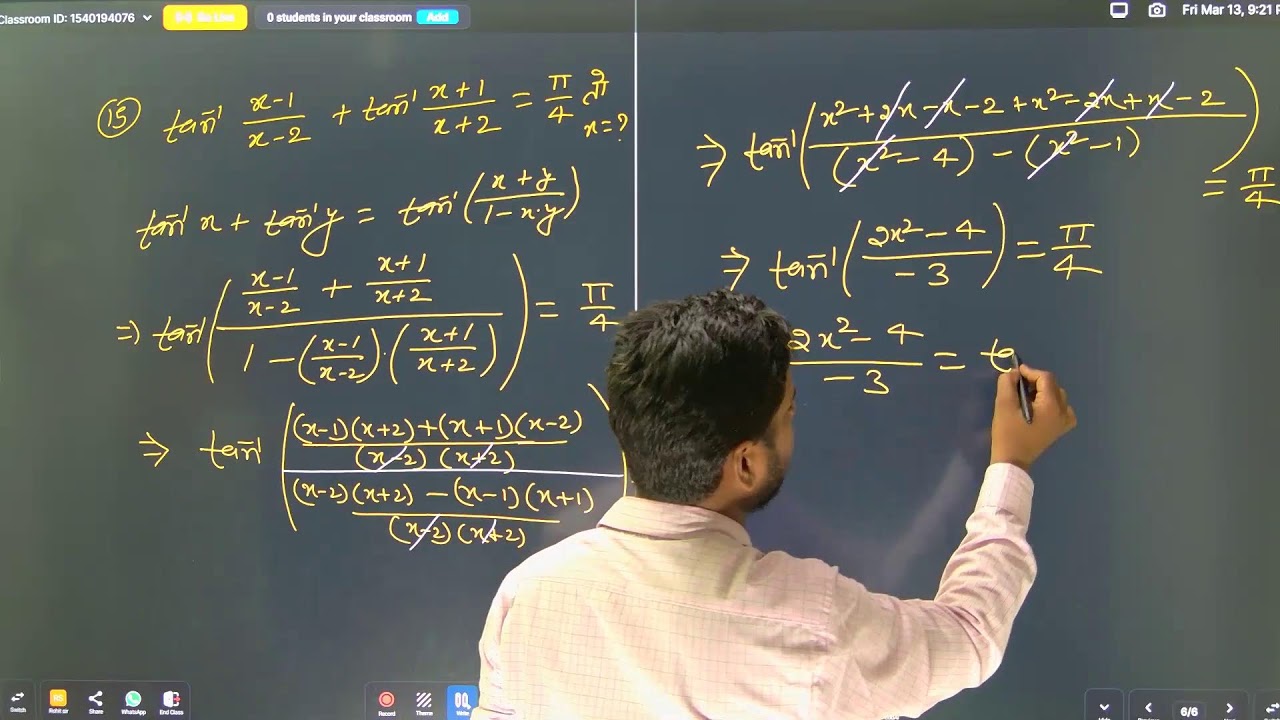 Classroom ID: 1540194076
0 students in your classroom Add
Fri Mar 13, 9:21 P
(15) tan⁻¹ (x-1)/(x-2) + tan⁻¹ (x+1)/(x+2) = π/4
x=?
tan⁻¹ x + tan⁻¹ y = tan⁻¹ ((x+y)/(1-x·y))
⇒ tan⁻¹ (((x-1)/(x-2) + (x+1)/(x+2))/(1-((x-1)/(x-2))·((x+1)/(x+2)))) = π/4
⇒ tan⁻¹ (((x-1)(x+2)+(x+1)(x-2))/((x-2)(x+2)) / ((x-2)(x+2)-(x-1)(x+1))/((x-2)(x+2)))
⇒ tan⁻¹ ((x²+2x-x-2+x²-2x+x-2)/((x²-4)-(x²-1))) = π/4
⇒ tan⁻¹ ((2x²-4)/-3) = π/4
(2x²-4)/-3 = ta
Switch
Rohit sir
Share
WhatsApp
End Class
Record
Theme
Write
6/6
Switch